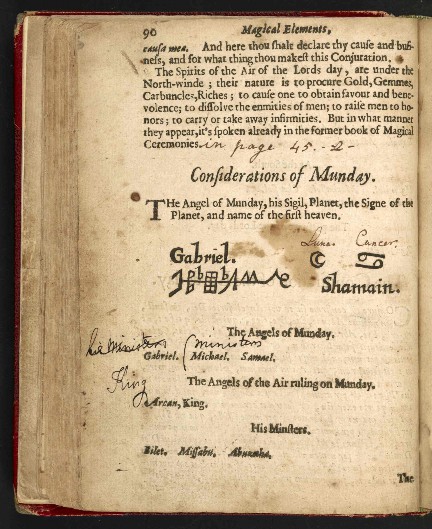 90 Magical Elements,
causa mea. And here thou shalt declare thy cause and busi-
ness, and for what thing thou makest this Conjuration.
The Spirits of the Air of the Lords day, are under the
North-winde; their nature is to procure Gold, Gemmes,
Carbuncles, Riches; to cause one to obtain favour and bene-
volence; to dissolve the enmities of men; to raise men to ho-
nors; to carry or take away infirmities. But in what manner
they appear, it's spoken already in the former book of Magical
Ceremonies. in page 45. - 2 -
Considerations of Munday.
THe Angel of Munday, his Sigil, Planet, the Signe of the
Planet, and name of the first heaven.
Luna. Cancer.
Gabriel. ☾ ♋
Shamain.
The Angels of Munday.
his Ministers (ministers
Gabriel. Michael. Samael.
King
The Angels of the Air ruling on Munday.
Arcan, King.
His Minsters.
Bilet. Missabu. Abuzaha.
The